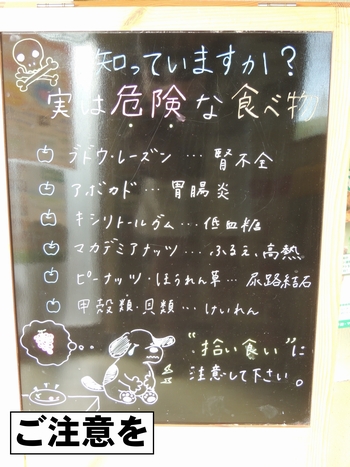 知っていますか？
実は危険な食べ物
ブドウ・レーズン…腎不全
アボカド…胃腸炎
キシリトールガム…低血糖
マカデミアナッツ…ふるえ、高熱
ピーナッツ・ほうれん草…尿路結石
甲殻類・貝類…けいれん
"拾い食い"に
注意して下さい。
ご注意を